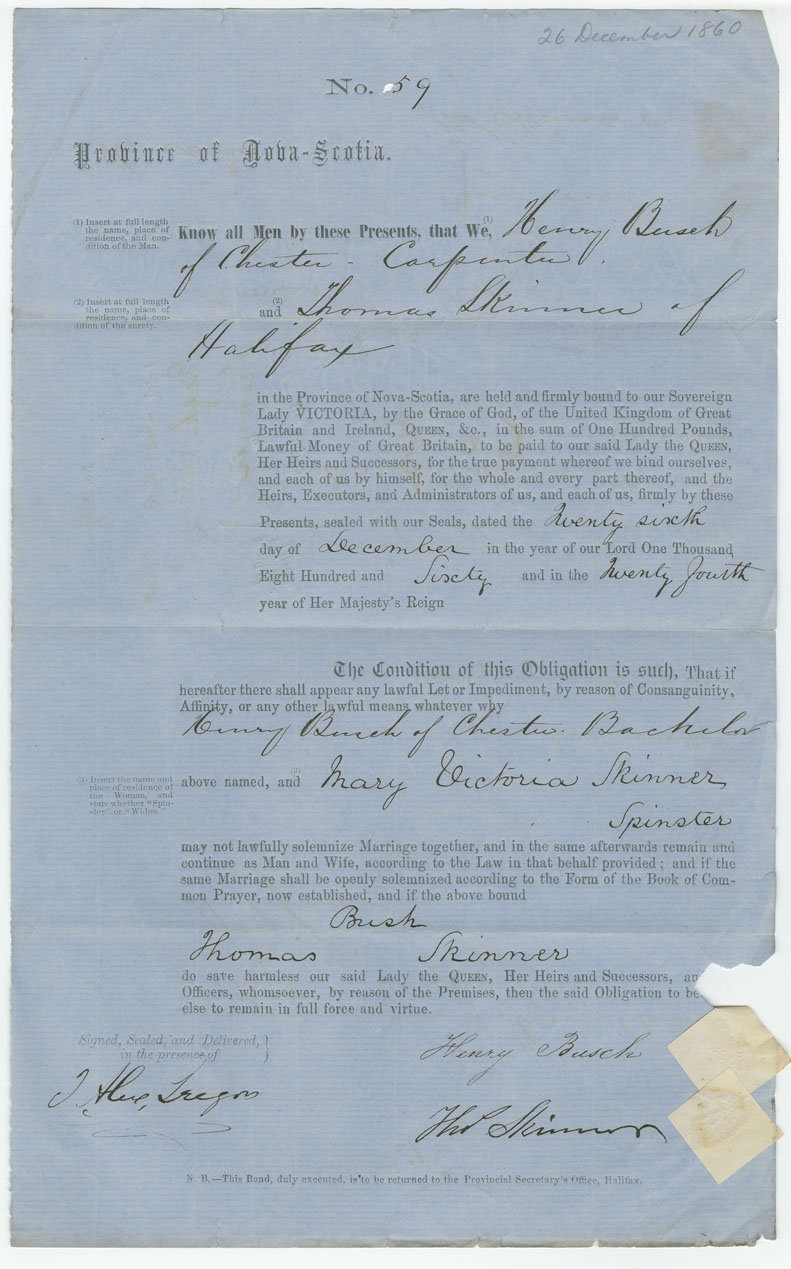 26 December 1860
No. 59
Province of Nova-Scotia.
(1) Insert at full length
the name, place of
residence, and con-
dition of the Man.
Know all Men by these Presents, that We, (1) Henry Busch
of Chester - Carpenter.
(2) Insert at full length
the name, place of
residence, and con-
dition of the surety.
and (2) Thomas Skinner of
Halifax
in the Province of Nova-Scotia, are held and firmly bound to our Sovereign
Lady VICTORIA, by the Grace of God, of the United Kingdom of Great
Britain and Ireland, QUEEN, &c., in the sum of One Hundred Pounds,
Lawful Money of Great Britain, to be paid to our said Lady the QUEEN,
Her Heirs and Successors, for the true payment whereof we bind ourselves,
and each of us by himself, for the whole and every part thereof, and the
Heirs, Executors, and Administrators of us, and each of us, firmly by these
Presents, sealed with our Seals, dated the Twenty sixth
day of December in the year of our Lord One Thousand
Eight Hundred and Sixty and in the Twenty fourth
year of Her Majesty's Reign
The Condition of this Obligation is such, That if
hereafter there shall appear any lawful Let or Impediment, by reason of Consanguinity,
Affinity, or any other lawful means whatever why
Henry Busch of Chester. Bachelor
(3) Insert the name and
place of residence of
the Woman, and
state whether "Spin-
ster" or "Widow."
above named, and (3) Mary Victoria Skinner
Spinster
may not lawfully solemnize Marriage together, and in the same afterwards remain and
continue as Man and Wife, according to the Law in that behalf provided; and if the
same Marriage shall be openly solemnized according to the Form of the Book of Com-
mon Prayer, now established, and if the above bound
Bush
Thomas Skinner
do save harmless our said Lady the QUEEN, Her Heirs and Successors, an
Officers, whomsoever, by reason of the Premises, then the said Obligation to be
else to remain in full force and virtue.
Signed, Sealed, and Delivered, }
in the presence of
Henry Busch
Thos Skinner
N. B.—This Bond, duly executed, is to be returned to the Provincial Secretary's Office, Halifax.